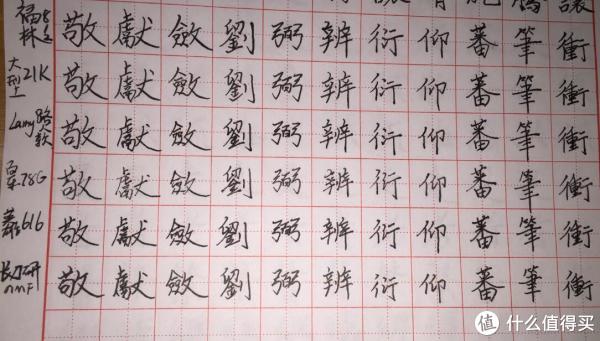 福林 敬 獻 斂 劉 弼 辨 衍 仰 蕃 筆 衝
大型 21K 敬 獻 斂 劉 弼 辨 衍 仰 蕃 筆 衝
Lamy 敬 獻 斂 劉 弼 辨 衍 仰 蕃 筆 衝
78G 敬 獻 斂 劉 弼 辨 衍 仰 蕃 筆 衝
616 敬 獻 斂 劉 弼 辨 衍 仰 蕃 筆 衝
长刀研 敬 獻 斂 劉 弼 辨 衍 仰 蕃 筆 衝
值 什么值得买